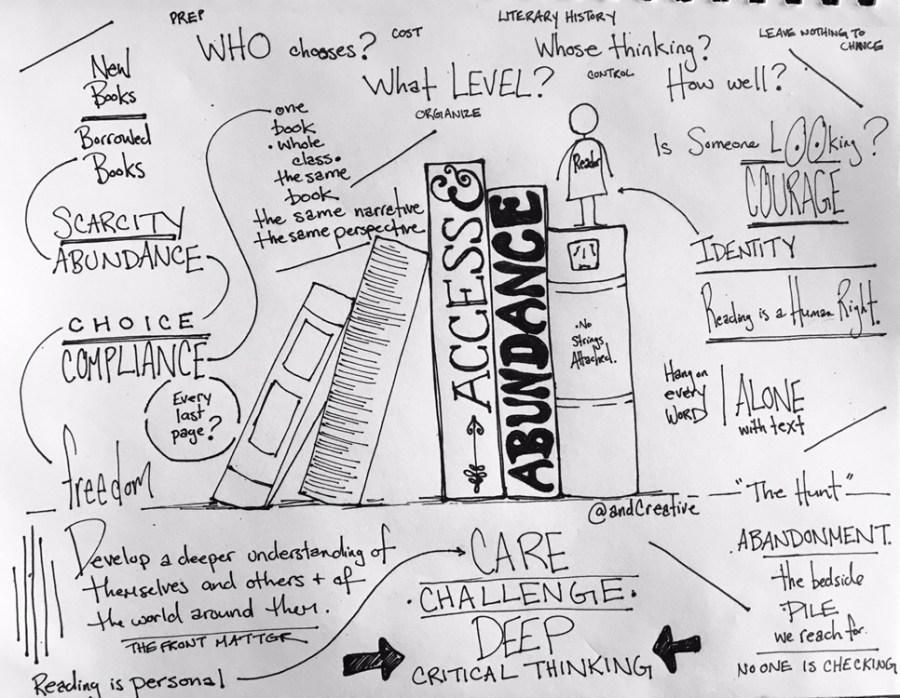 PREP
WHO chooses?
COST
LITERARY HISTORY
Whose thinking?
LEAVE NOTHING TO
CHANCE
What LEVEL?
CONTROL
How well?
ORGIANIZE
New
Books
Borrowed
Books
SCARCITY
ABUNDANCE
CHOICE
COMPLIANCE
Every
last
page?
freedom
one
book
• whole
class •
the same
book
the same narrative
the same perspective
ACCESS &
ABUNDANCE
Reader
• No
Strings
Attached.
Is Someone LOOking?
COURAGE
IDENTITY
Reading is a Human Right.
Hang on
every
WORD
ALONE
with text
@andCreative
"The Hunt"
ABANDONMENT.
the bedside
PILE
we reach for.
NO ONE IS CHECKING
Develop a deeper understanding of
themselves and others + of
the world around them.
THE FRONT MATTER
Reading is personal
CARE
• CHALLENGE •
DEEP
CRITICAL THINKING